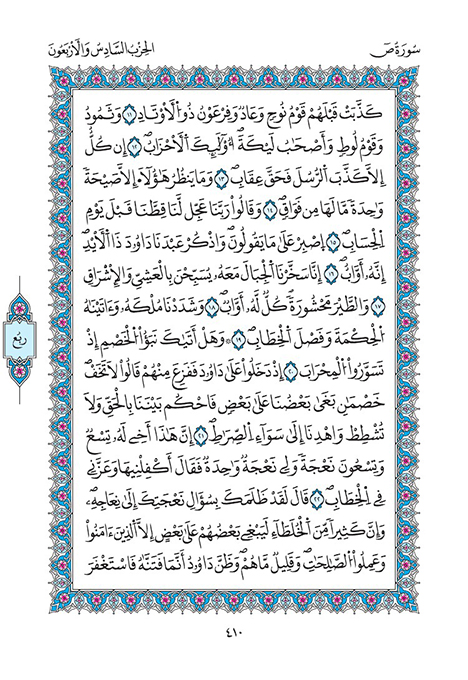 سُورَةُ صٓ
الحِزْبُ السَّادِسُ وَالأَرْبَعُونَ
كَذَّبَتْ قَبْلَهُمْ قَوْمُ نُوحٍ وَعَادٌ وَفِرْعَوْنُ ذُو الْأَوْتَادِ ١١ وَثَمُودُ
وَقَوْمُ لُوطٍ وَأَصْحَابُ لَيْكَةَ أُوْلَٰئِكَ الْأَحْزَابُ ١٢ إِن كُلٌّ
إِلَّا كَذَّبَ الرُّسُلَ فَحَقَّ عِقَابِ ١٣ وَمَا يَنظُرُ هَٰؤُلَاءِ إِلَّا صَيْحَةً
وَاحِدَةً مَّا لَهَا مِن فَوَاقٍ ١٤ وَقَالُواْ رَبَّنَا عَجِّل لَّنَا قِطَّنَا قَبْلَ يَوْمِ
الْحِسَابِ ١٥ اِصْبِرْ عَلَىٰ مَا يَقُولُونَ وَاذْكُرْ عَبْدَنَا دَاوُدَ ذَا الْأَيْدِ
إِنَّهُ أَوَّابٌ ١٦ إِنَّا سَخَّرْنَا الْجِبَالَ مَعَهُ يُسَبِّحْنَ بِالْعَشِيِّ وَالْإِشْرَاقِ
١٧ وَالطَّيْرَ مَحْشُورَةً كُلٌّ لَّهُ أَوَّابٌ ١٨ وَشَدَدْنَا مُلْكَهُ وَءَاتَيْنَٰهُ
الْحِكْمَةَ وَفَصْلَ الْخِطَابِ ١٩ ۞ وَهَلْ أَتَىٰكَ نَبَؤُاْ الْخَصْمِ إِذْ
تَسَوَّرُواْ الْمِحْرَابَ ٢٠ إِذْ دَخَلُواْ عَلَىٰ دَاوُدَ فَفَزِعَ مِنْهُمْ قَالُواْ لَا تَخَفْ
خَصْمَٰنِ بَغَىٰ بَعْضُنَا عَلَىٰ بَعْضٍ فَاحْكُم بَيْنَنَا بِالْحَقِّ وَلَا
تُشْطِطْ وَاهْدِنَا إِلَىٰ سَوَاءِ الصِّرَٰطِ ٢١ إِنَّ هَٰذَا أَخِي لَهُ تِسْعٌ
وَتِسْعُونَ نَعْجَةً وَلِي نَعْجَةٌ وَٰحِدَةٌ فَقَالَ أَكْفِلْنِيهَا وَعَزَّنِي
فِي الْخِطَابِ ٢٢ قَالَ لَقَدْ ظَلَمَكَ بِسُؤَالِ نَعْجَتِكَ إِلَىٰ نِعَاجِهِ
وَإِنَّ كَثِيرًا مِّنَ الْخُلَطَاءِ لَيَبْغِي بَعْضُهُمْ عَلَىٰ بَعْضٍ إِلَّا الَّذِينَ ءَامَنُواْ
وَعَمِلُواْ الصَّٰلِحَٰتِ وَقَلِيلٌ مَّا هُمْ وَظَنَّ دَاوُدُ أَنَّمَا فَتَنَّٰهُ فَاسْتَغْفَرَ
ربع
٤١٠